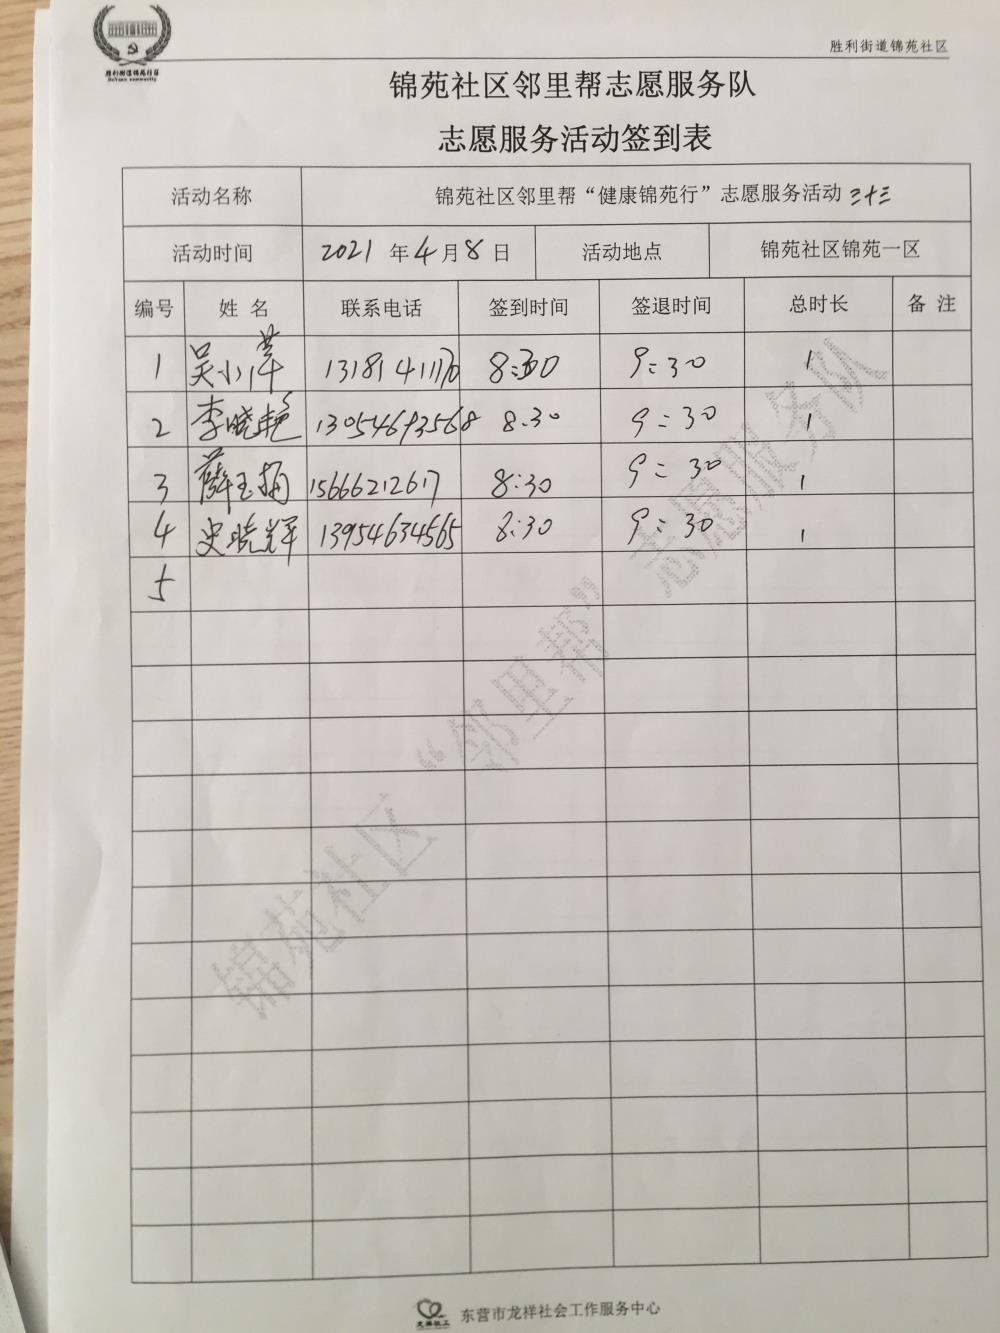 胜利街道锦苑社区
胜利街道锦苑社区
锦苑社区邻里帮志愿服务队
志愿服务活动签到表
活动名称 锦苑社区邻里帮“健康锦苑行”志愿服务活动 三十三
活动时间 2021 年 4 月 8 日 活动地点 锦苑社区锦苑一区
编号 姓名 联系电话 签到时间 签退时间 总时长 备注
1 吴小萍 13181411170 8:30 9:30 1
2 李晓艳 13054693568 8:30 9:30 1
3 薛玉 15666212617 8:30 9:30 1
4 史晓辉 13954634565 8:30 9:30 1
5
锦苑社区“邻里帮”志愿服务队
龙祥社工 东营市龙祥社会工作服务中心